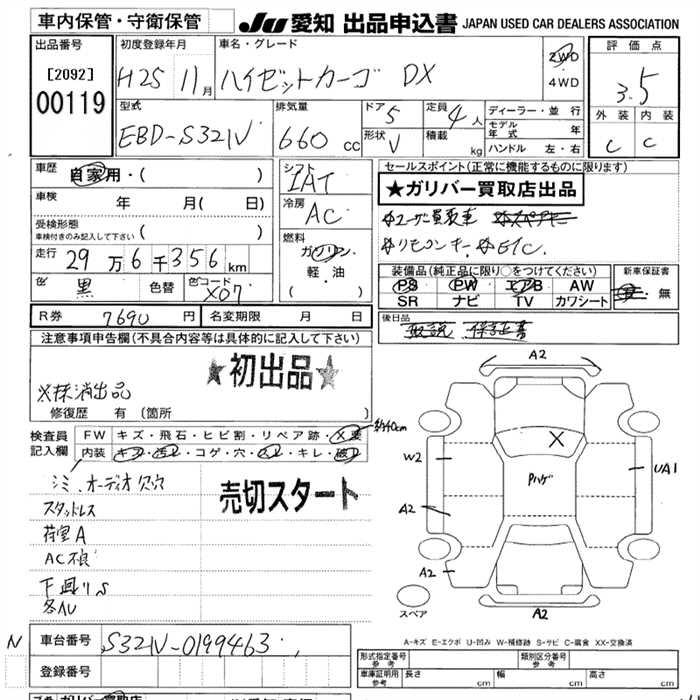 車内保管・守衛保管 JU 愛知 出品申込書 JAPAN USED CAR DEALERS ASSOCIATION
出品番号
[2092]
00119
初度登録年月
H25 11月
車名・グレード
ハイゼットカーゴ DX
2WD
4WD
評価点
3.5
外装 内装
C C
型式
EBD-S321V
排気量
660 cc
ドア 5
形状 V
定員 4人
積載 kg
ディーラー・並行
モデル年式 年
ハンドル 左・右
車歴
自家用・( )
車検
年 月( 日)
受検形態
車検付きのみ記入して下さい ( )
走行 29万6千356km
色 黒 色替 色コード X07
シフト
IAT
冷房
AC
燃料
ガソリン
軽・油
( )
セールスポイント(正常に機能するものに限ります)
★ガリバー買取店出品
☆ユーザー買取車 ☆スペアキー
☆リモコンキー ☆ETC
装備品(純正品に限り○をつけてください)
PS PW エアB AW
SR ナビ TV カワシート
新車保証書
有・無
後日品
取説 保証書
R券 7690円 名変期限 月 日
注意事項申告欄(不具合内容等は具体的に記入して下さい)
★初出品★
※抹消出品
修復歴 有(箇所 )
検査員
記入欄
FW キズ・飛石・ヒビ割・リペア跡・X要
内装 キズ・汚レ・コゲ・穴・スレ・キレ・破レ
約40cm
シミ、オーディオ欠穴
スタッドレス
荷室A
AC不良
下回りS
各AU
売切スタート
A2
X
W2
Pハゲ
UA1
A2
A2
A2
スペア
A-キズ E-エクボ U-凹み W-補修跡 S-サビ C-腐食 XX-交換済
N 車台番号 S321V-0199463
登録番号
形式指定番号 参考
類別区分番号 参考
車庫証明用 参考 長さ cm 幅 cm 高さ cm